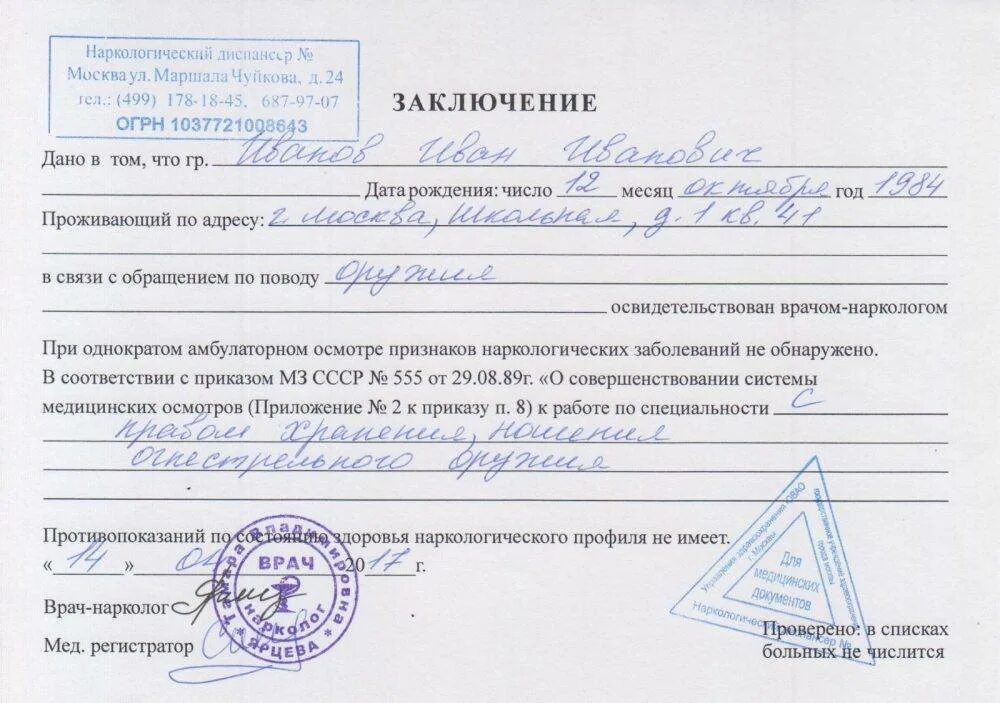 Наркологический диспансер №
Москва ул. Маршала Чуйкова, д.24
тел.: (499) 178-18-45, 687-97-07
ОГРН 1037721008643
ЗАКЛЮЧЕНИЕ
Дано в том, что гр. Иванов Иван Иванович
Дата рождения: число 12 месяц октября год 1984
Проживающий по адресу: г. Москва, Школьная, д. 1 кв. 41
в связи с обращением по поводу оружия
освидетельствован врачом-наркологом
При однократом амбулаторном осмотре признаков наркологических заболеваний не обнаружено.
В соответствии с приказом МЗ СССР № 555 от 29.08.89г. «О совершенствовании системы
медицинских осмотров (Приложение № 2 к приказу п. 8) к работе по специальности с
правом хранения, ношения
огнестрельного оружия
Противопоказаний по состоянию здоровья наркологического профиля не имеет.
«14» 2017 г.
Врач-нарколог
Мед. регистратор
Тамара Владимировна
ЯРЦЕВА
ВРАЧ
нарколог
Управления здравоохранения ЮВАО
г. Москвы
государственное учреждение здравоохранения
города москвы
Наркологический диспансер №
Для
медицинских
документов
Проверено: в списках
больных не числится